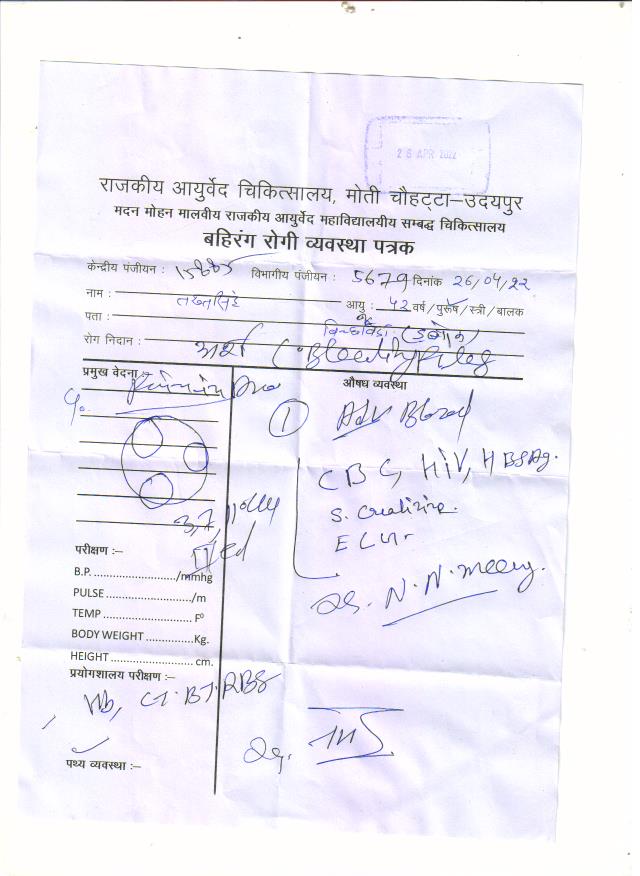 26 APR 2022
राजकीय आयुर्वेद चिकित्सालय, मोती चौहट्टा-उदयपुर
मदन मोहन मालवीय राजकीय आयुर्वेद महाविद्यालयीय सम्बद्ध चिकित्सालय
बहिरंग रोगी व्यवस्था पत्रक
केन्द्रीय पंजीयन : 15885 विभागीय पंजीयन : 5679 दिनांक 26/04/22
नाम : तख्तसिंह आयु : 42 वर्ष/पुरूष/स्त्री/बालक
पता :
रोग निदान : अर्श (Bleeding Piles
प्रमुख वेदना :-
औषध व्यवस्था
1 Adv Blood
CBC, HIV, HBSAg.
3,7,11 
S. Creatinine.
परीक्षण :-
B.P. ......................../mmhg
PULSE ......................./m
TEMP ......................... F⁰
BODY WEIGHT ..............Kg.
HEIGHT ....................... cm.
प्रयोगशालय परीक्षण :-
Hb, CT. BT. RBS
पथ्य व्यवस्था :-